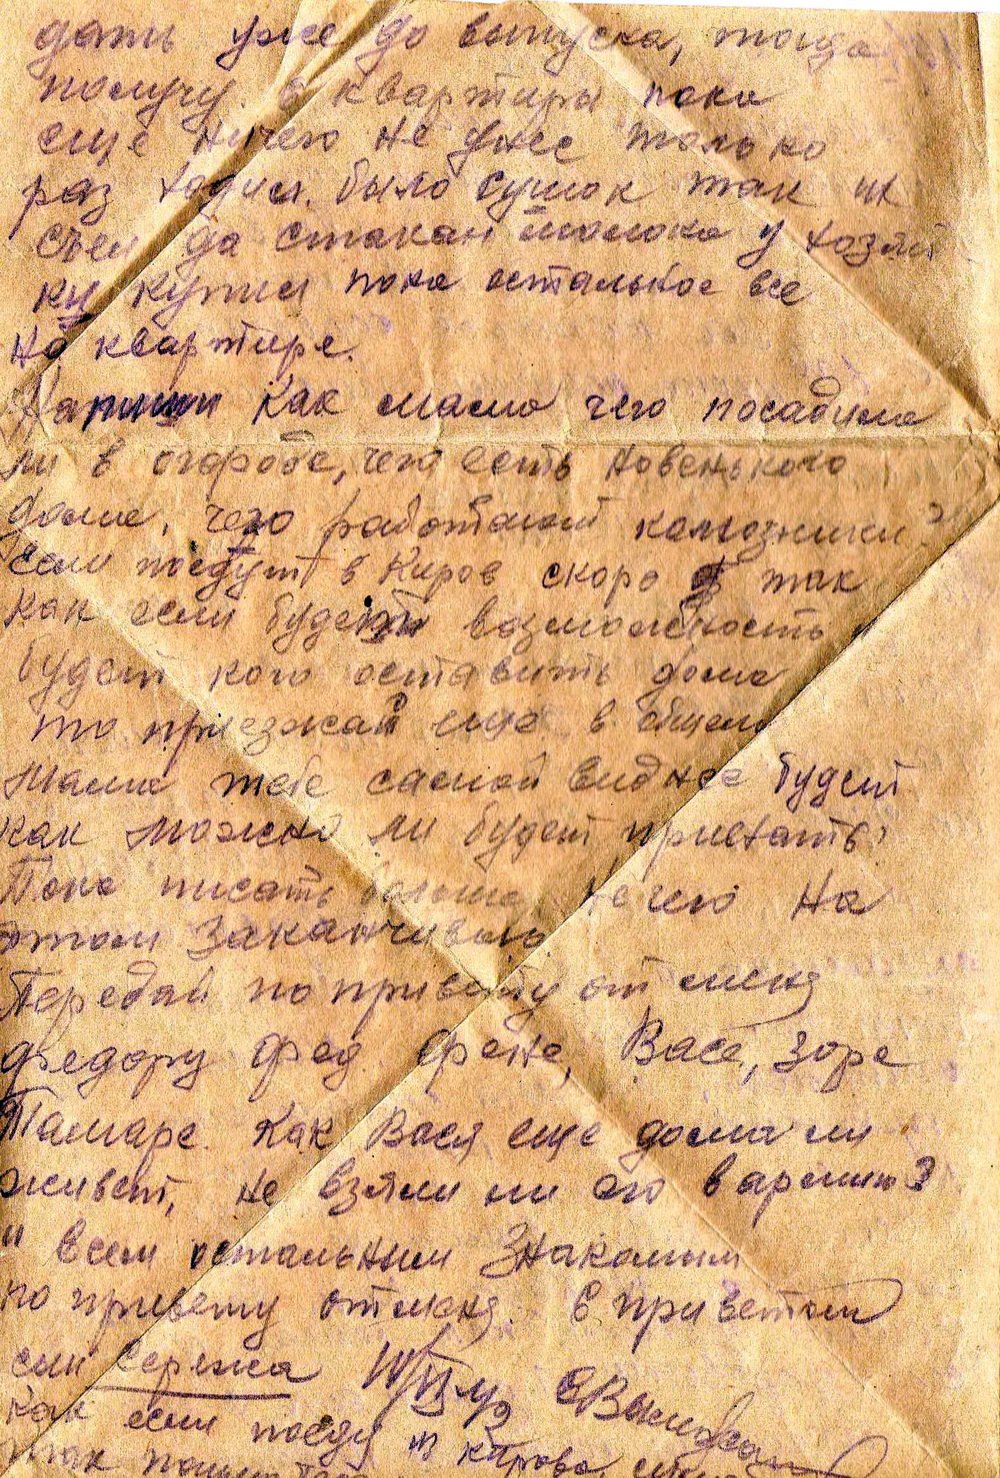 дать уже до выпуска, тогда
получу. С квартиры пока
еще ничего не унес только
раз ходил. было сушок так их
съел да стакан молока у хозяй
ки купил пока остальное все
на квартире.
Напиши как мама чего посадила
ли в огороде, чего есть новенького
дома, чего работают колхозники?
если поедут в Киров скоро так
как если будет возможность и
будет кого оставить дома
то приезжай еще в общем
мама тебе самой виднее будет
как можно ли будет приехать?
Пока писать больше нечего На
этом заканчиваю
Передай по привету от меня
Федору Фед. Фене, Васе, Зоре
Тамаре. Как Вася еще дома ли
живет, не взяли ли его в армию?
и всем остальным знакомым
по привету от меня. С приветом
сын Сережа
как если поеду из Кирова
так